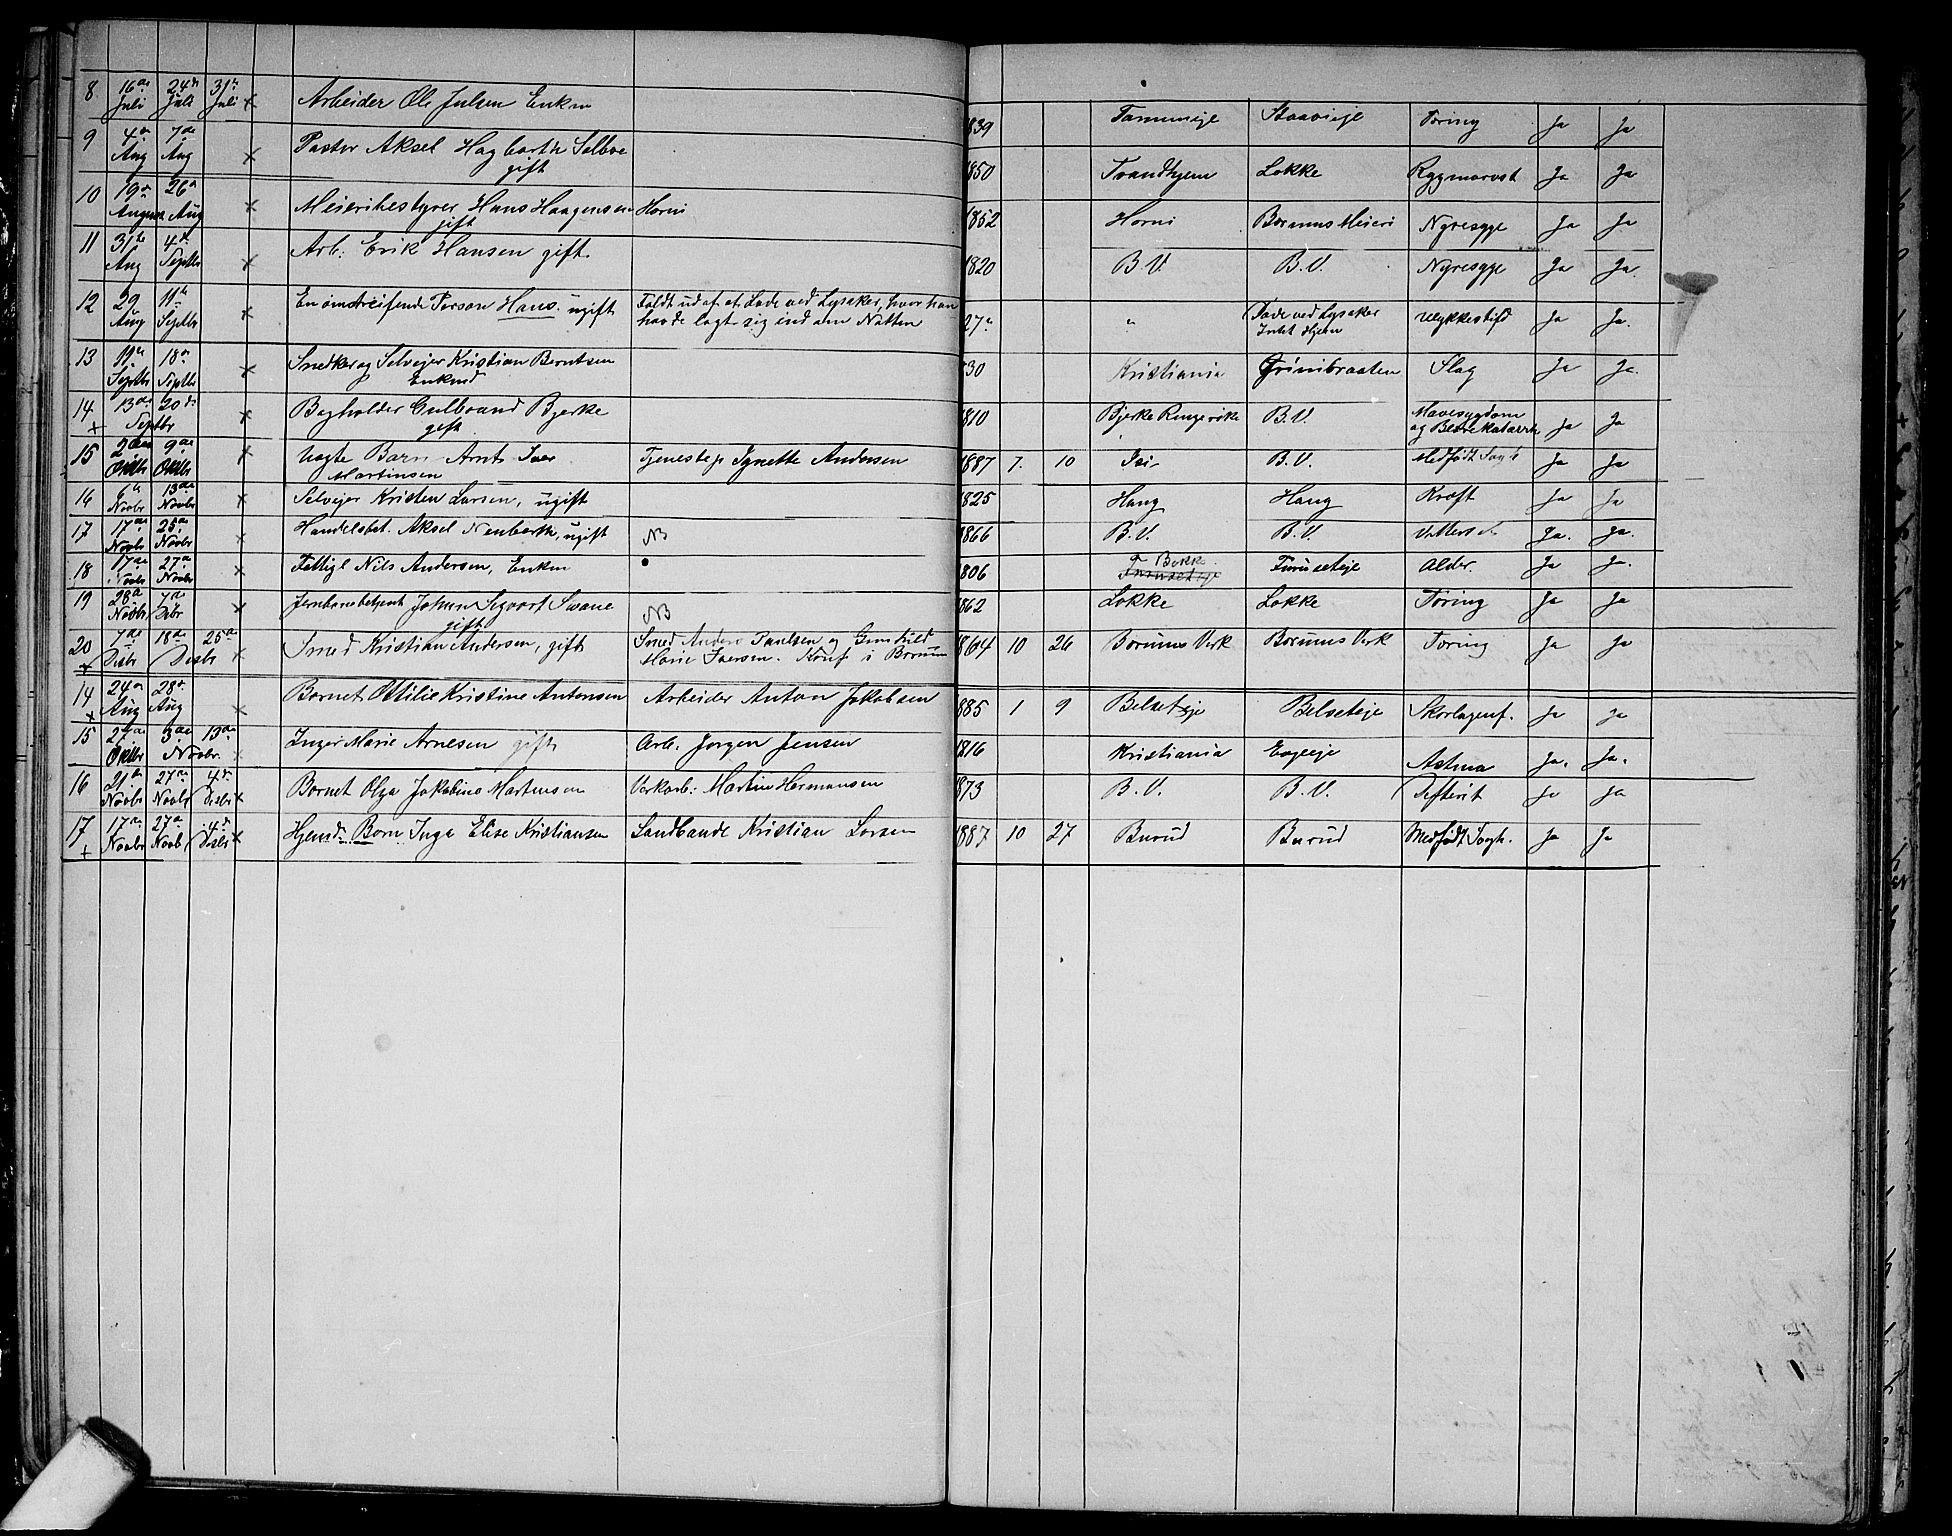 8 16de Juli 24de Juli 31te Juli x Arbeider Ole Julsen Enkm 1839 Tanumseje Staavieje Tæring Ja Ja
9 4de Aug 7de Aug x Pastor Aksel Hagbarth
gift 1850 Trondhjem Løkke Rygmarvst Ja Ja
10 19de August 26de Aug x Meieribestyrer Hans Haagensen Horni 1852 Horni Bærums Meieri Nyresyge Ja Ja
gift
11 31te Aug 4de Septbr x Arb: Erik Hansen gift. 1820 B.V. B.V. Nyresyge Ja Ja.
12 29 Aug 11te Septbr x En omstreifende Person Hans. ugift Faldt ud af et Lade ved Lysaker, hvor han
havde lagt sig ind om Natten 27" " Lade ved Lysaker
Intet Hjem Ulykkestilf Ja Ja.
13 11te Septbr 18de Septbr x Snedker og Selveier Kristian Berntsen
Enkmd 30 Kristiania Grinibraaten Slag Ja Ja.
14 + 13de 20de Septbr x Bogholder Gulbrand Bjerke
gift 1810 Bjerke Ringerike B.V. Mavesygdom
og Blærekatarrh Ja Ja
15 2den Oktbr 9de Oktbr x Uægte Barn Arnt Iver
Martinsen Tjenestep. Agnette Andersen 1887 7. 10 Isi B.V. Medfødt Ja Ja
16 6te Novbr 13de Novbr x Selvejer Kristen Larsen, ugift 1825 Haug Haug Kræft Ja Ja
17 17de Novbr 25de Novbr x Handelsbet. Aksel Nenbarth, ugift NB 1866 B.V. B.V. Ja. Ja.
18 17de Novbr 27de Novbr x Fattigl Nils Andersen, Enkm 1806 Bekke Furuseteje Alder. Ja Ja.
Furuseteje
19 28de Novbr 7de Dcbr x Jernbanebetjent Johan Sigvart Svane
gift NB 1862 Løkke Løkke Tæring Ja Ja
20 + 7de Desbr 18de Desbr 25de x Smed Kristian Andersen, gift Smed Anders Paulsen og Gunhild
Marie Iversen. Konf i Bærum 1864 10 26 Bærums Verk Bærums Verk Tæring Ja Ja
14 x 24de Aug 28de Aug x Barnet Ottilie Kristine Antonsen Arbeider Anton Jakobsen 885 1 9 Belseteje Belseteje Skarlagenf. Ja Ja
15 27de Oktbr 3de 13de Novbr. x Inger Marie Arnesen gift Arb. Jørgen Jensen 1816 Kristiania Evjeeje Astma Ja. Ja.
16 21de Novbr 27de Novbr 4de Desbr x Barnet Olga Jakobine Martinsen Verkarb: Martin Hermansen 1873 B.V. B.V. Difterit Ja Ja
17 + 17de Novbr 27de Novb 4de Desbr x Hjemd. Barn Inga Elise Kristiansen Landhand. Kristian Larsen 1887 10 27 Burud Burud Medfødt Svagh. Ja Ja